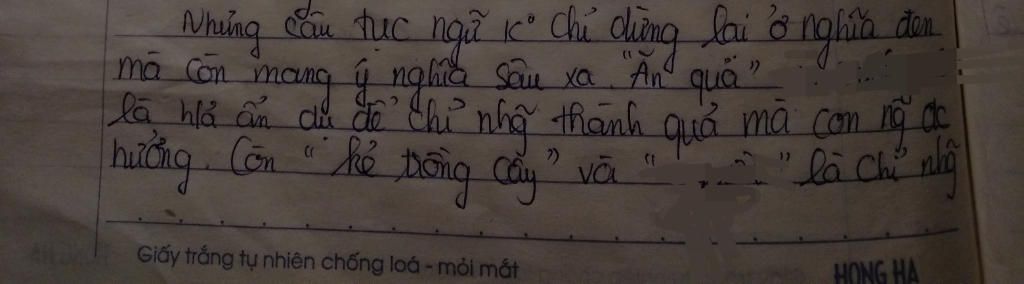 Nhưng câu tục ngữ k° chỉ dừng lại ở nghĩa đen
mà còn mang ý nghĩa sâu xa. "Ăn quả"
là h/ả ẩn dụ để chỉ nhg̃ thành quả mà con ng̃ đc
hưởng. Còn "kẻ trồng cây" và " " là chỉ nhg̃
Giấy trắng tự nhiên chống loá - mỏi mắt
HONG HA